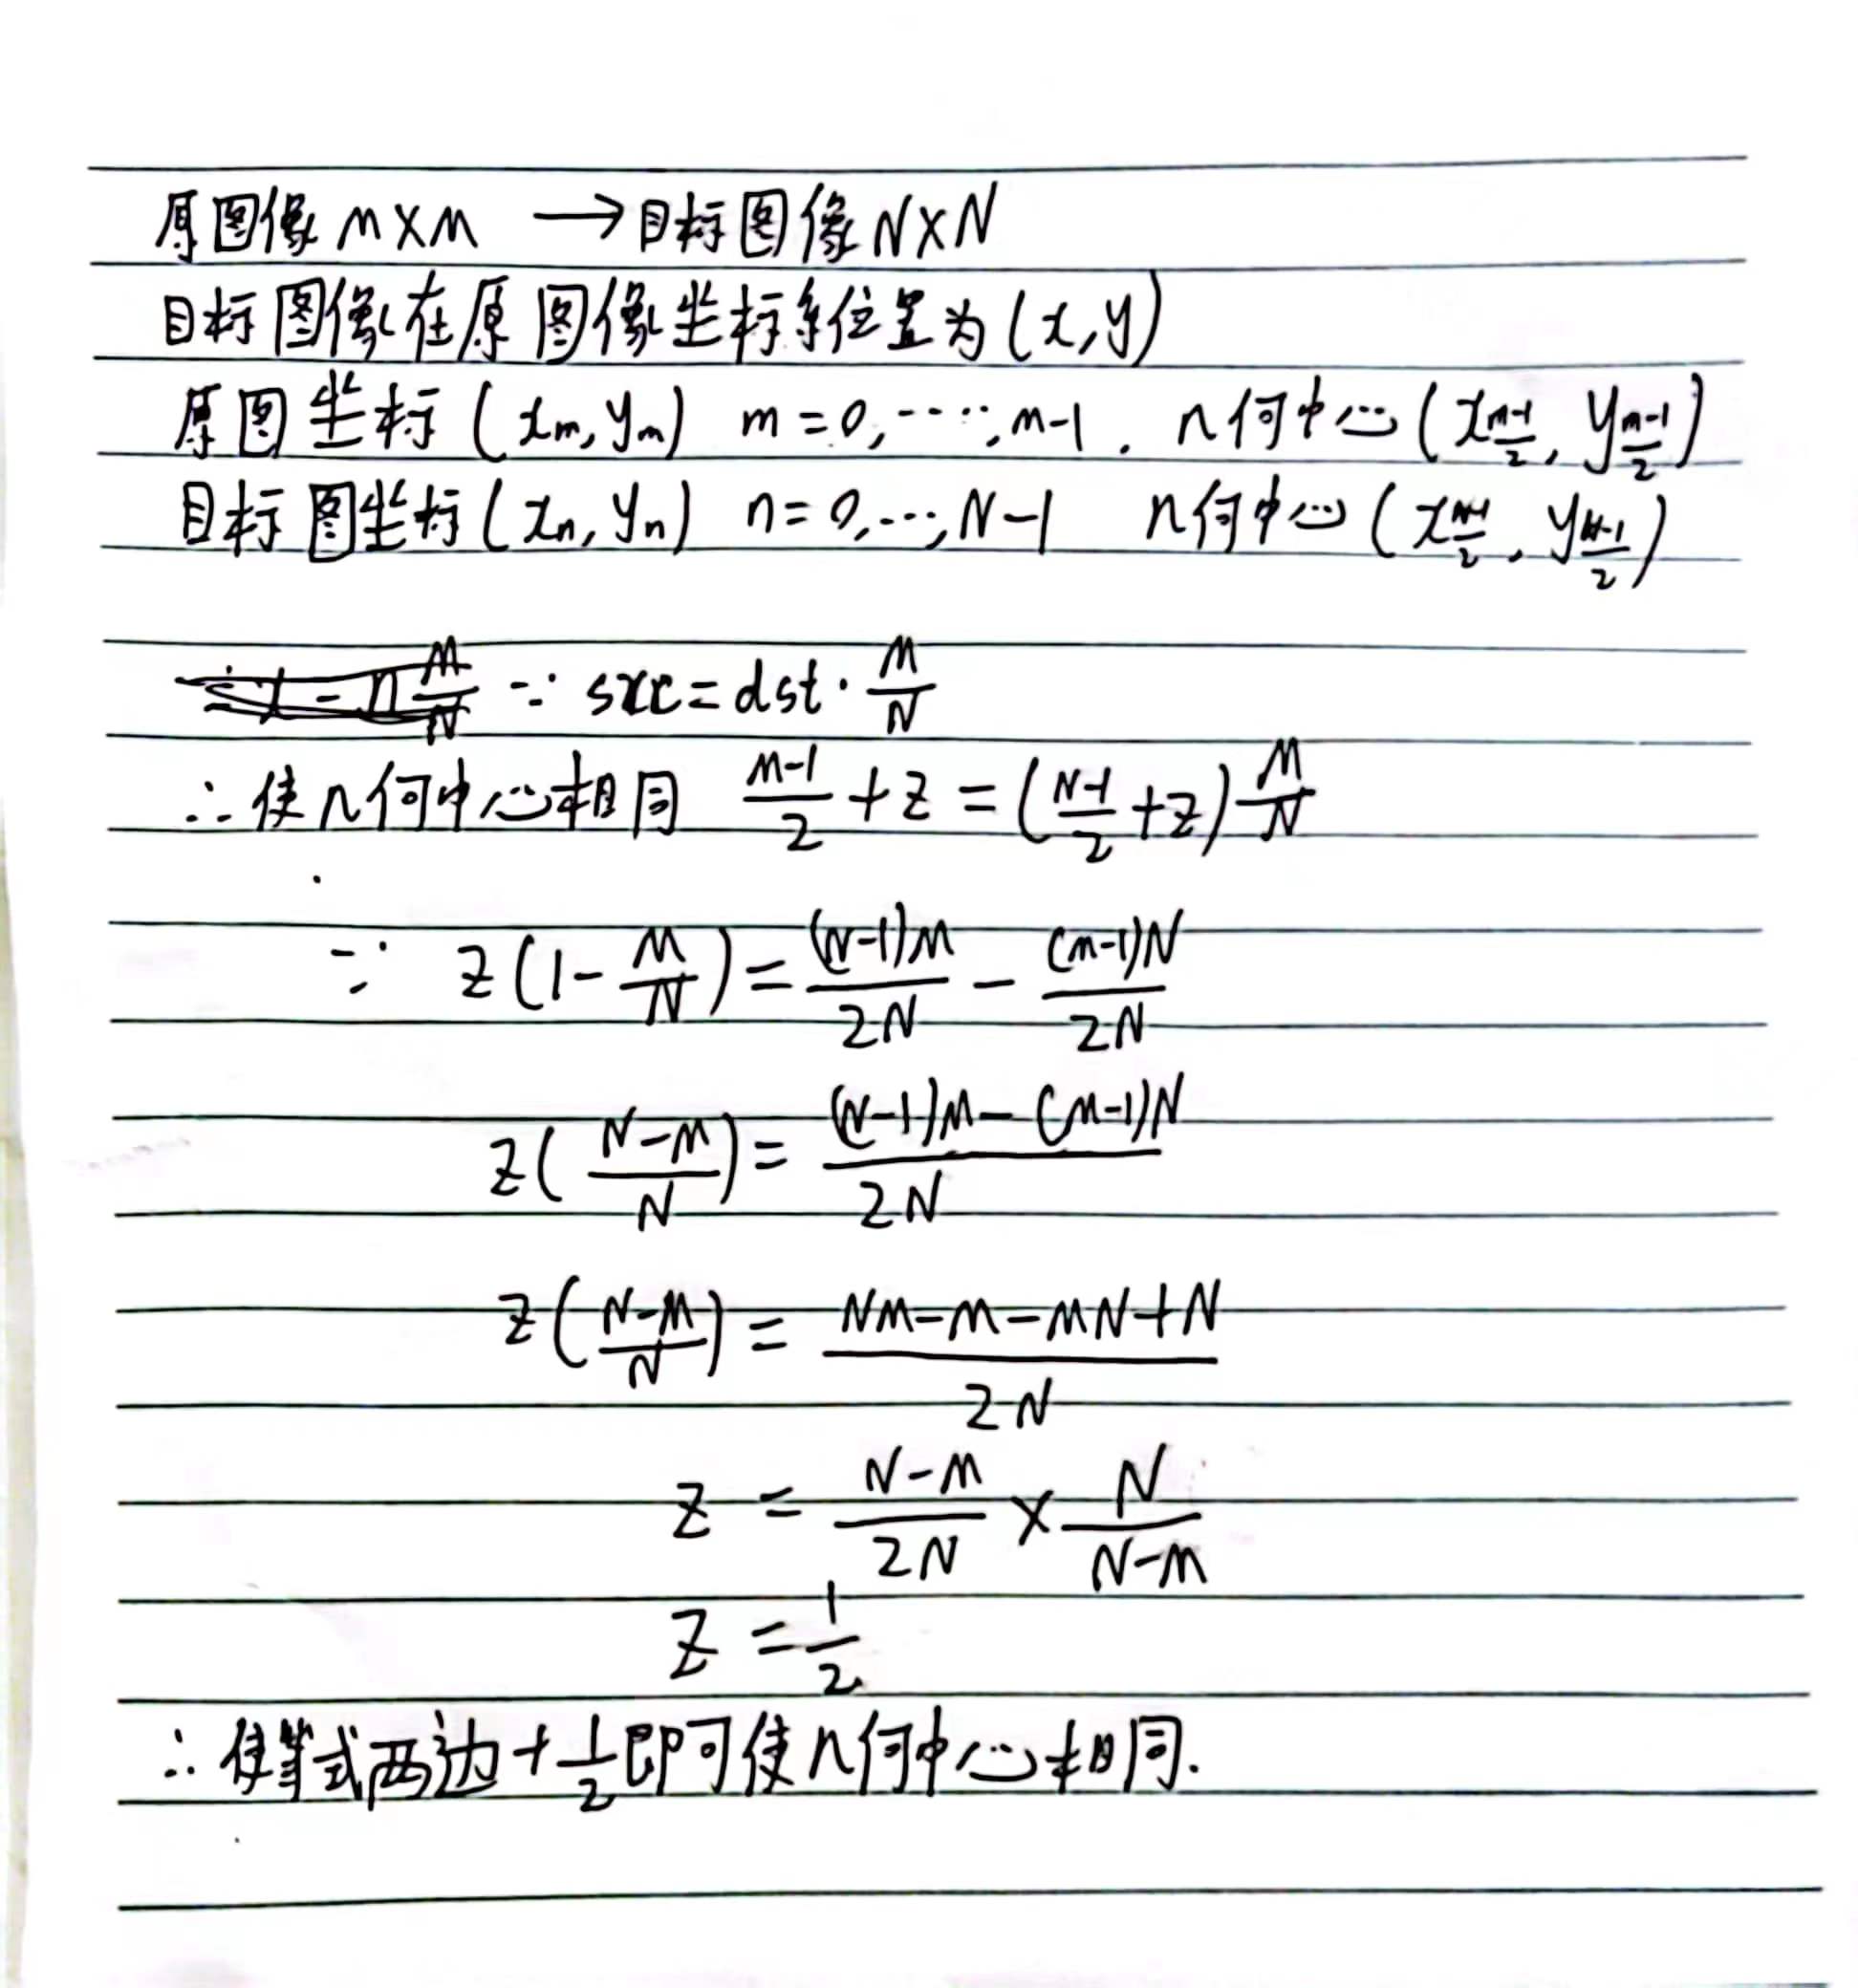 原图像 M×M → 目标图像 N×N
目标图像在原图像坐标系位置为(x,y)
原图坐标(x_m, y_m) m=0,……,M-1. 几何中心(x_{\frac{M-1}{2}}, y_{\frac{M-1}{2}})
目标图坐标(x_n, y_n) n=0,…,N-1 几何中心(x_{\frac{N-1}{2}}, y_{\frac{N-1}{2}})
∵ src=dst·\frac{M}{N}
∴使几何中心相同 \frac{M-1}{2}+z=(\frac{N-1}{2}+z)\frac{M}{N}
∵ z(1-\frac{M}{N})=\frac{(N-1)M}{2N}-\frac{(M-1)N}{2N}
z(\frac{N-M}{N})=\frac{(N-1)M-(M-1)N}{2N}
z(\frac{N-M}{N})=\frac{NM-M-MN+N}{2N}
z=\frac{N-M}{2N}×\frac{N}{N-M}
z=\frac{1}{2}
∴使等式两边+\frac{1}{2}即可使几何中心相同.